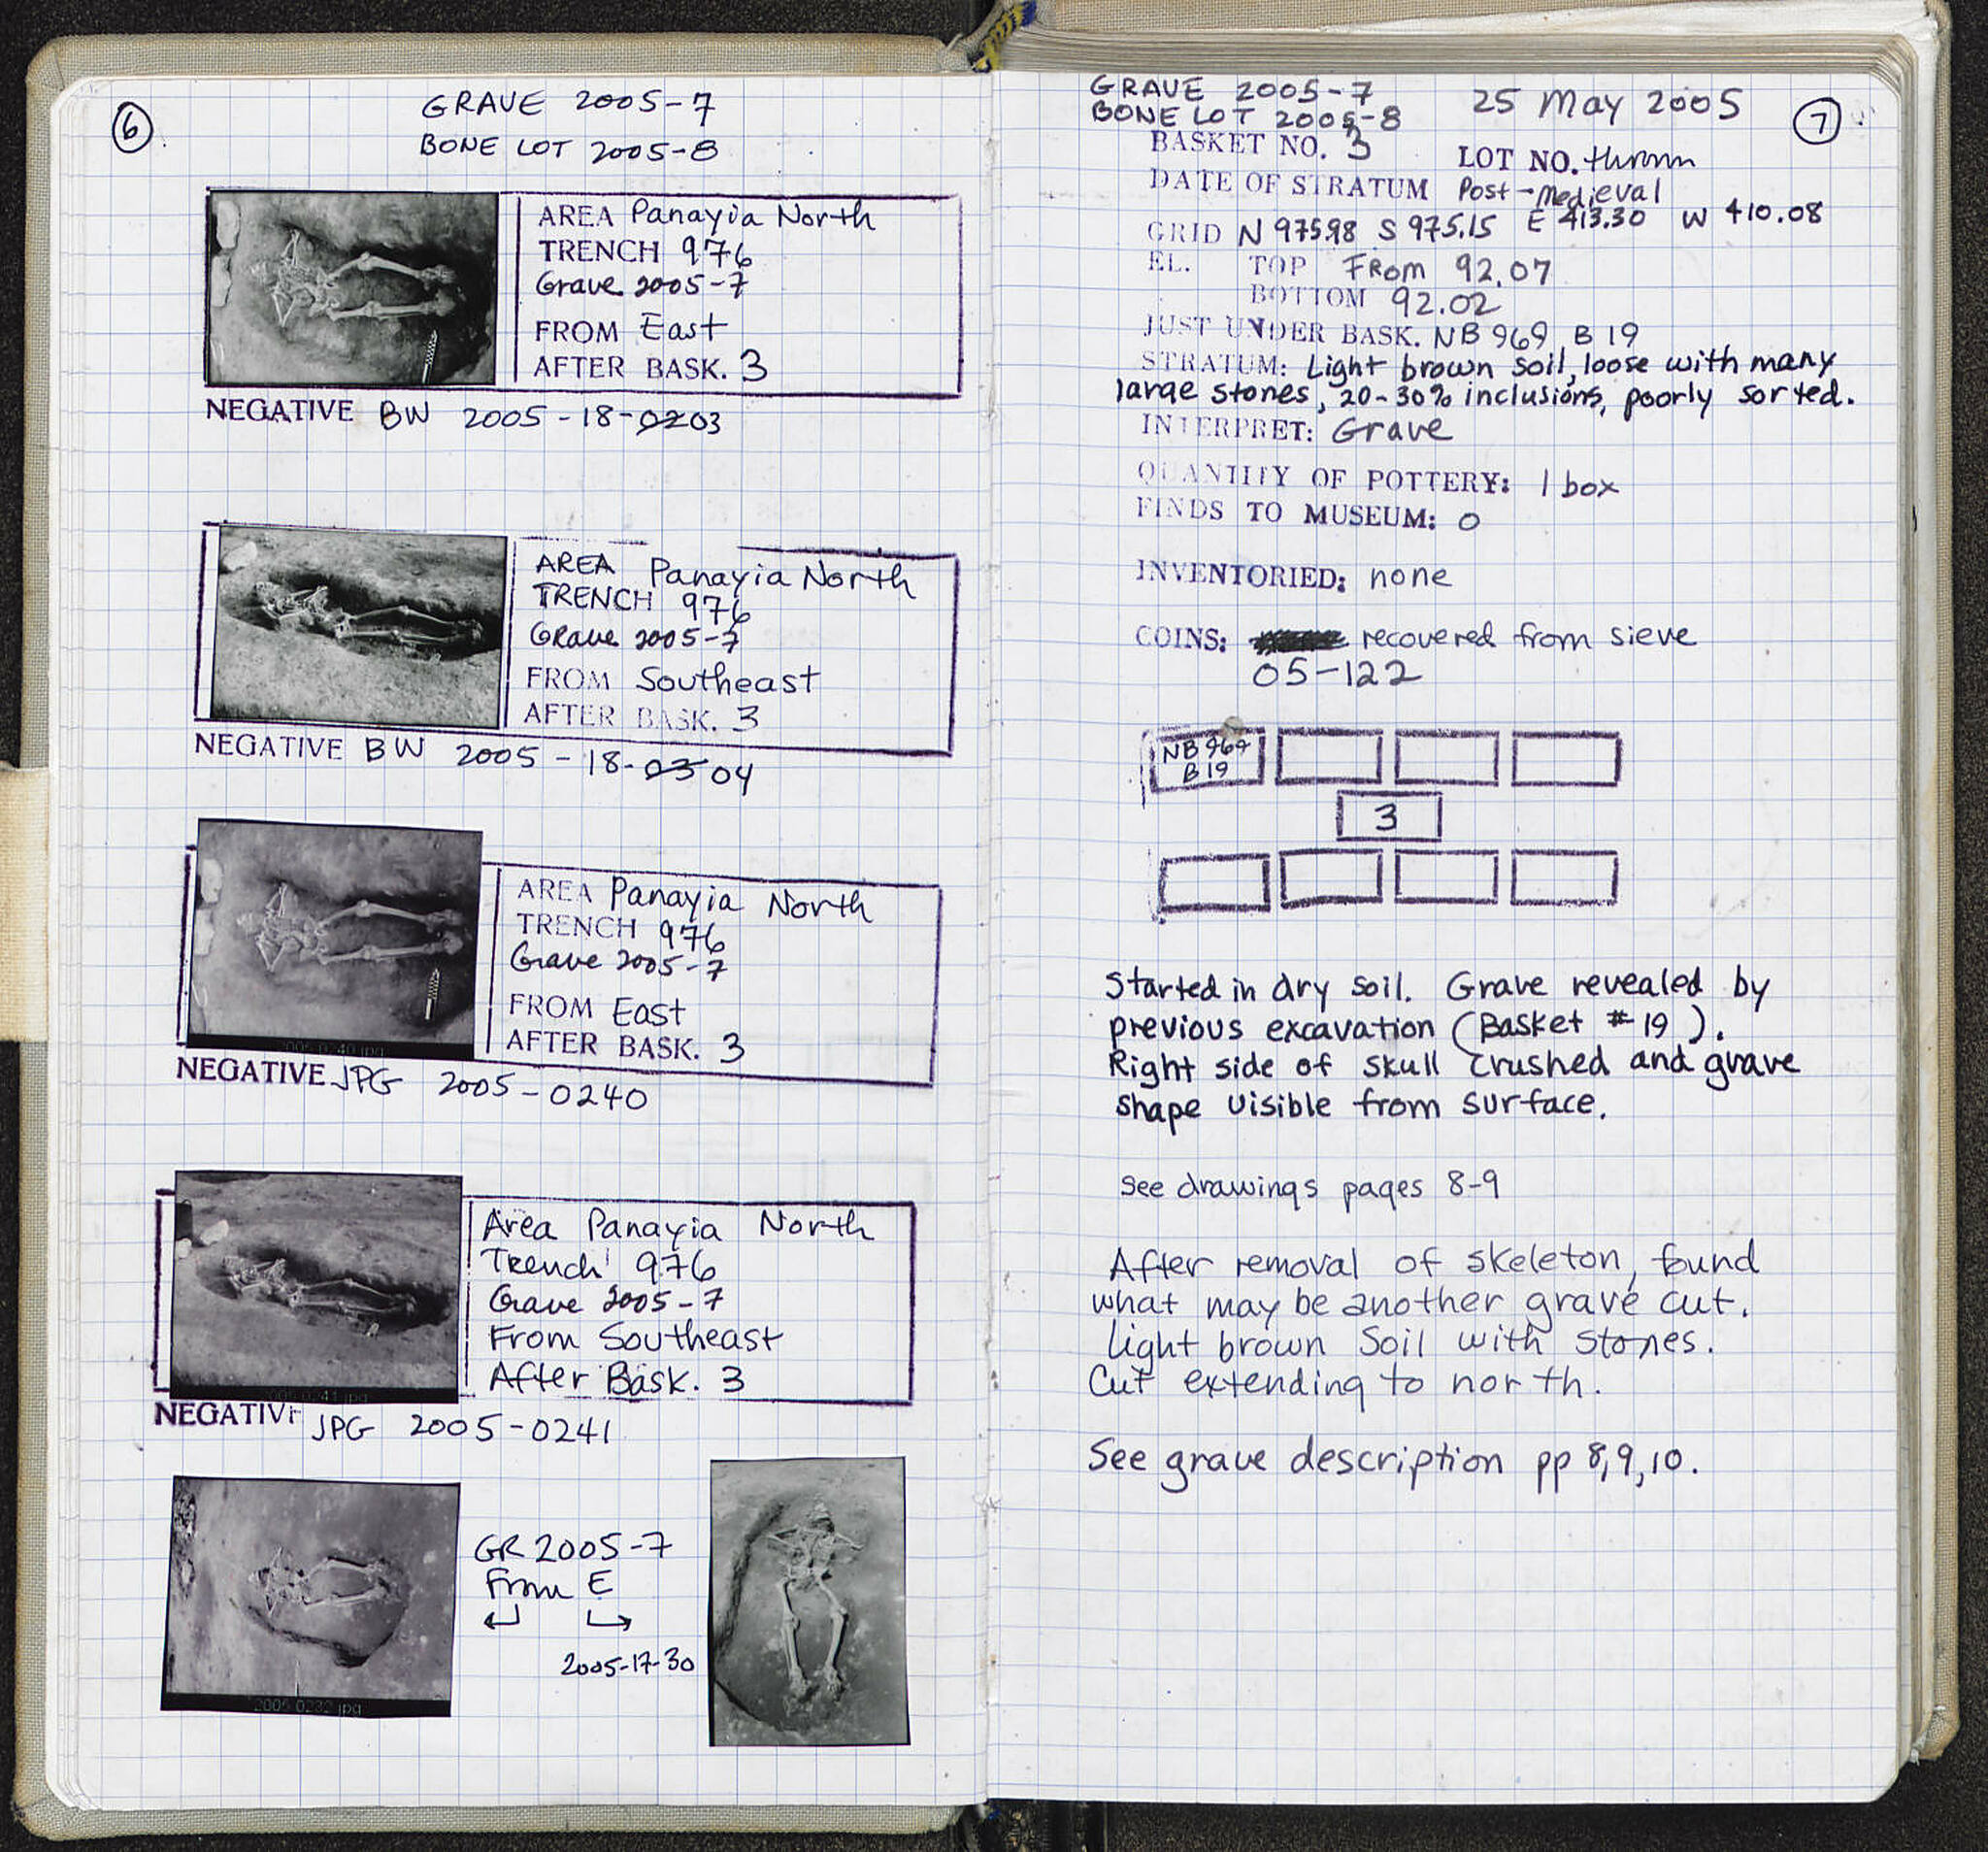 6
GRAVE 2005-7
BONE LOT 2005-8
AREA Panayia North
TRENCH 976
Grave 2005-7
FROM East
AFTER BASK. 3
NEGATIVE BW 2005-18-0203
AREA Panayia North
TRENCH 976
Grave 2005-7
FROM Southeast
AFTER BASK. 3
NEGATIVE BW 2005-18-0304
AREA Panayia North
TRENCH 976
Grave 2005-7
FROM East
AFTER BASK. 3
2005-0240.jpg
NEGATIVE JPG 2005-0240
Area Panayia North
Trench 976
Grave 2005-7
From Southeast
After Bask. 3
2005-0241.jpg
NEGATIVE JPG 2005-0241
GR 2005-7
From E
2005-17-30
GRAVE 2005-7
BONE LOT 2005-8
25 May 2005
7
BASKET NO. 3
LOT NO. thrown
DATE OF STRATUM Post-Medieval
GRID N 975.98 S 975.15 E 413.30 W 410.08
EL. TOP FROM 92.07
BOTTOM 92.02
JUST UNDER BASK. NB 969, B 19
STRATUM: Light brown soil, loose with many
large stones, 20-30% inclusions, poorly sorted.
INTERPRET: Grave
QUANTITY OF POTTERY: 1 box
FINDS TO MUSEUM: 0
INVENTORIED: none
COINS: recovered from sieve
05-122
NB 969
B 19
3
Started in dry soil. Grave revealed by
previous excavation (Basket #19).
Right side of skull crushed and grave
shape visible from surface.
see drawings pages 8-9
After removal of skeleton, found
what may be another grave cut.
Light brown Soil with stones.
Cut extending to north.
See grave description pp 8,9,10.